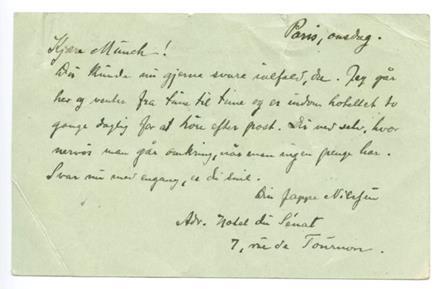 Paris, onsdag.
Kjære Munch!
Du kunde nu gjerne svare ialfald, du. Jeg går
her og venter fra time til time og er indom hotellet to
gange daglig for at høre efter post. Du ved selv, hvor
nervøs man går omkring, når man ingen penge har.
Svar nu med engang, er du snil.
Din Jappe Nilssen
Adr. Hotel du Sénat
7, rue de Tournon.